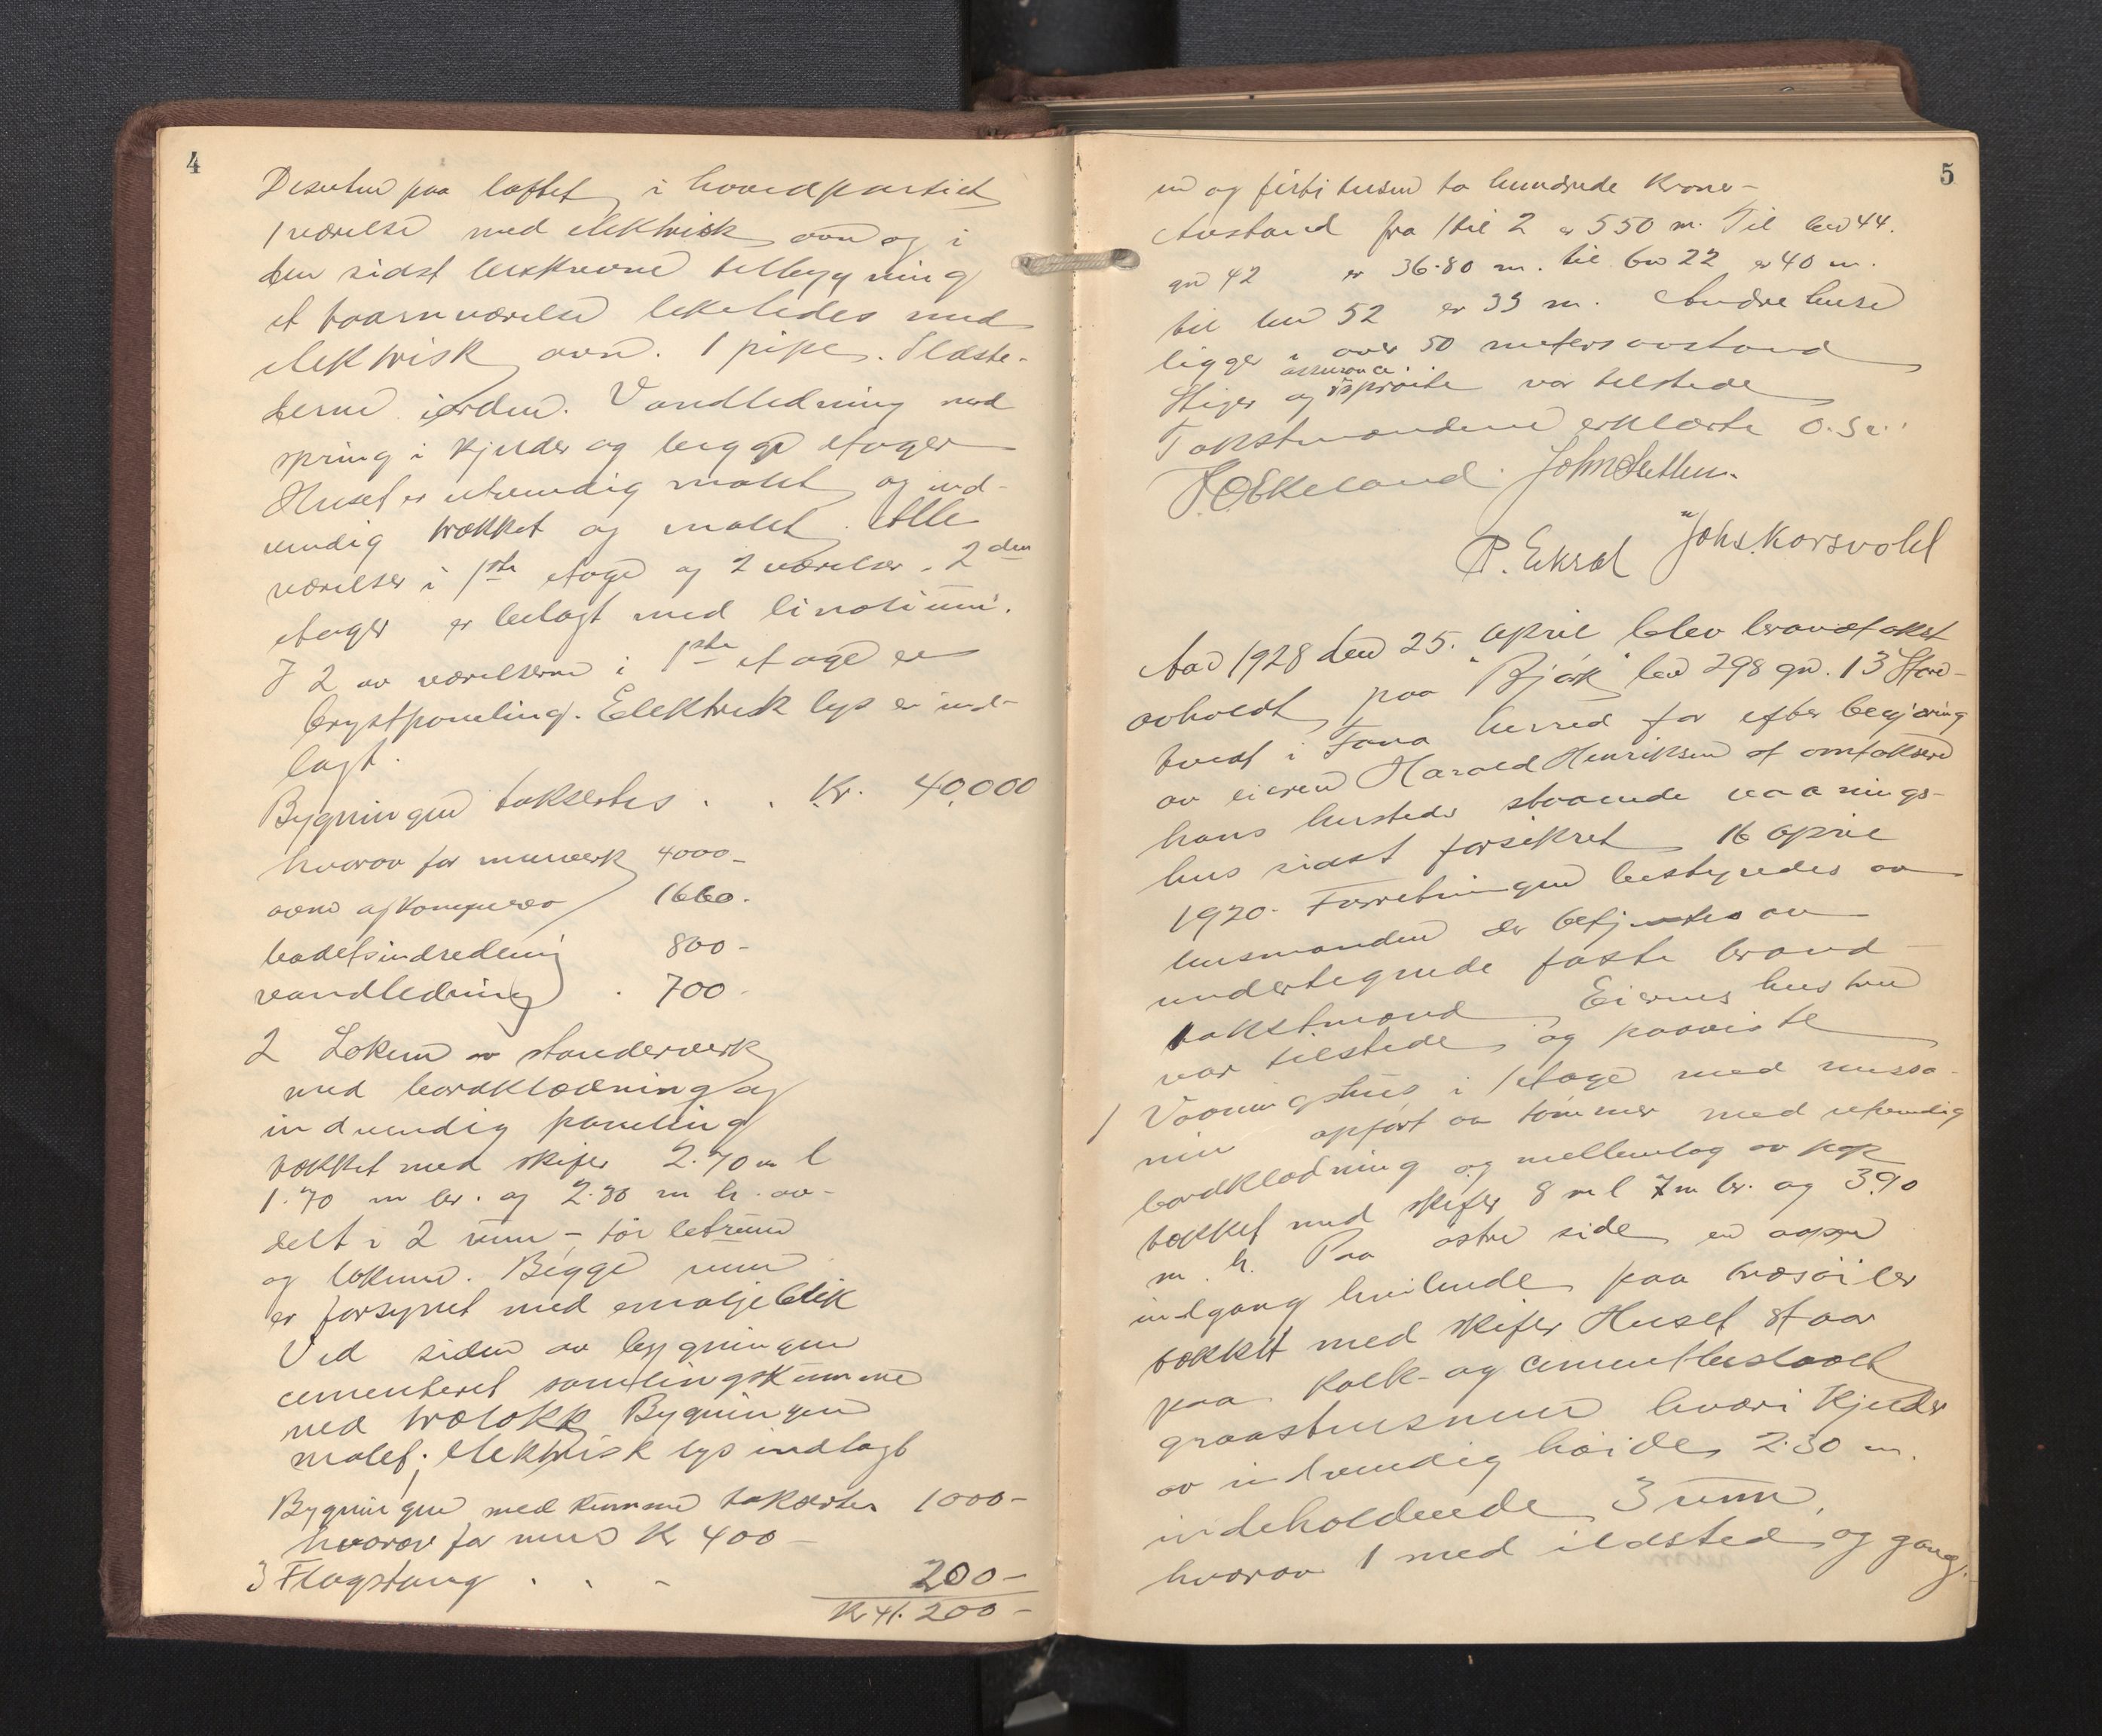 4
Desuten paa loftet i hovedpartiet
1 værelse med elektrisk ovn og i
den sidst beskrevne tilbygning
et taarnværelse likeledes med
elektrisk ovn. 1 pipe. Ildste-
derne iorden. Vandledning med
spring i kjelder og begge etager
Huset er utvendig malet og ind-
vendig trækket og malet. Alle
værelser i 1ste etage og 2 værelser. 2den
etager er belagt med linolium.
I 2 av værelserne i 1ste etage er
brystpaneling. Elektrisk lys er ind-
lagt.
Bygningen takseres . . Kr. 40.000
hvorav for murverk 4000-
ovne og komfyrer 1660.
badets indredning 800-
vandledning . 700-
2 Lokum av standerverk
med bordklædning og
indvendig paneling
tækket med skifer 2.70 m l
1.70 m br. og 2.80 m h. av-
delt i 2 rum -
og lokum. Begge rum
er forsynet med emaljeblik
Ved siden av bygningen
cementeret samlingskumme
med trælokk. Bygningen
malet; elektrisk lys indlagt
Bygningen med kumme takseres 1000-
hvorav for mur Kr 400-
3 Flagstang . . - 200-
Kr 41.200-
5
en og firti tusen to hundrede kroner-
Avstand fra 1 til 2 er 550 m. Til bno 44.
gno 42 er 36.80 m. til bno 22 er 40 m.
til bno 52 er 33 m. Andre huse
ligger i over 50 meters avstand
Stiger og sprøite var tilstede
Takstmændene erklærte
Ekeland. John
P. Eknæs Johs. Korsvold
Aar 1928 den 25. april blev brandtakst
avholdt paa "Bjørk" bno 298 gno. 13 Store-
tveit i Fana herred for efter begjæring
av eieren Harald Henriksen at omtaksere
hans hersteds staaende vaanings-
hus sidst forsikret 16 april
1920. Forretningen bestyredes av
lensmanden der betjentes av
undertegnede faste brand-
takstmænd. Eierens hustru
var tilstede og paaviste
1 Vaaningshus i 1 etage med
opført av tømmer med utvendig
bordklædning og mellemlag av pap
tækket med skifer 8 m l 7 m br. og 3.90
m. h. Paa østre side en aapen
indgang hvilende paa træsøiler
tækket med skifer Huset staar
paa kalk- og cementbeslaaet
graastensmur hvori kjelder
av indvendig høide 2.30 m.
indeholdende 3 rum,
hvorav 1 med ildsted og gang.